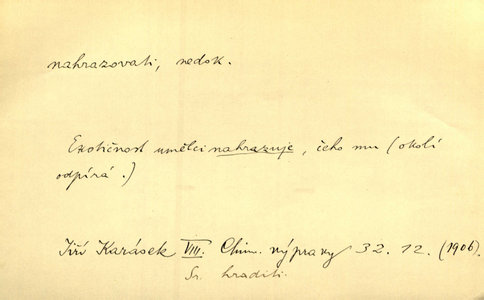 nahrazovati, nedok.
Exotičnost umělci nahrazuje, čeho mu (okolí
odpírá.)
Jiří Karásek VIII. Chim. výpravy 32. 12. (1906).
Sr. hraditi.